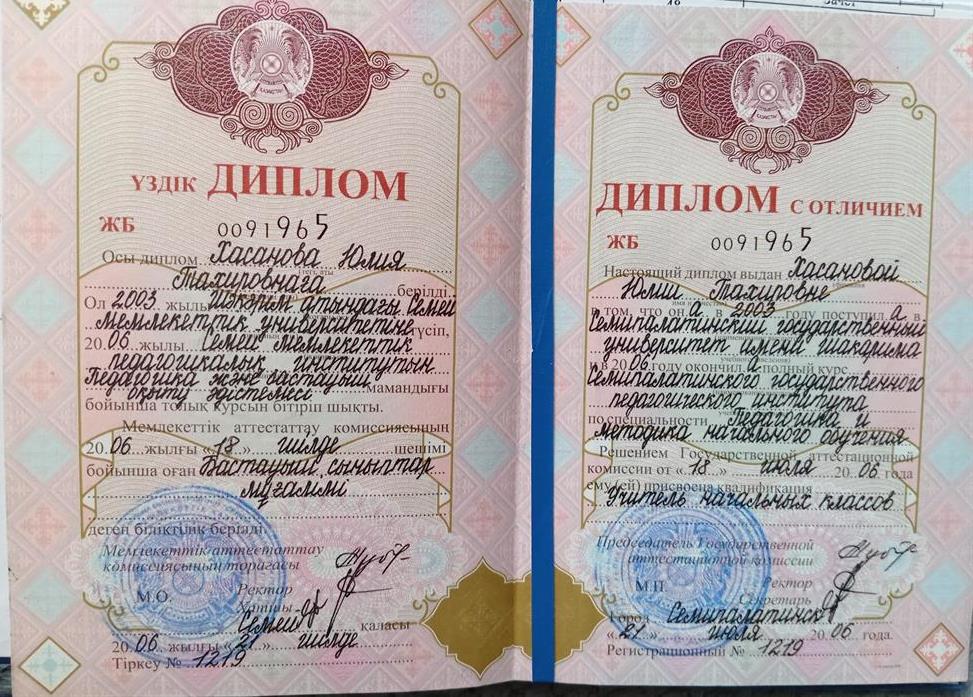 ҚАЗАҚСТАН
ҮЗДІК ДИПЛОМ
ЖБ 0091965
Осы диплом Хасанова Юлия
Тахировнаға берілді.
Ол 2003 жылы Шәкәрім атындағы Семей
мемлекеттік университетіне түсіп,
2006 жылы Семей мемлекеттік
педагогикалық институтын
Педагогика және бастауыш
оқыту әдістемесі мамандығы
бойынша толық курсын бітіріп шықты.
Мемлекеттік аттестаттау комиссиясының
2006 жылғы «18» шілде шешімі
бойынша оған Бастауыш сыныптар
мұғалімі
деген біліктілік берілді.
Мемлекеттік аттестаттау
комиссиясының торағасы
М.О. Ректор
Хатшы
Семей қаласы
2006 жылғы «21» шілде
Тіркеу № 1219
ҚАЗАҚСТАН
ДИПЛОМ С ОТЛИЧИЕМ
ЖБ 0091965
Настоящий диплом выдан Хасановой
Юлии Тахировне
в том, что она в 2003 году поступила в
Семипалатинский государственный
университет имени Шакарима
и в 2006 году окончила полный курс
Семипалатинского государственного
педагогического института
по специальности Педагогика и
методика начального обучения
Решением Государственной аттестационной
комиссии от «18» июля 2006 года
ему (ей) присвоена квалификация
Учитель начальных классов
Председатель Государственной
аттестационной комиссии
М.П. Ректор
Секретарь
Город Семипалатинск
«21» июля 2006 года.
Регистрационный № 1219